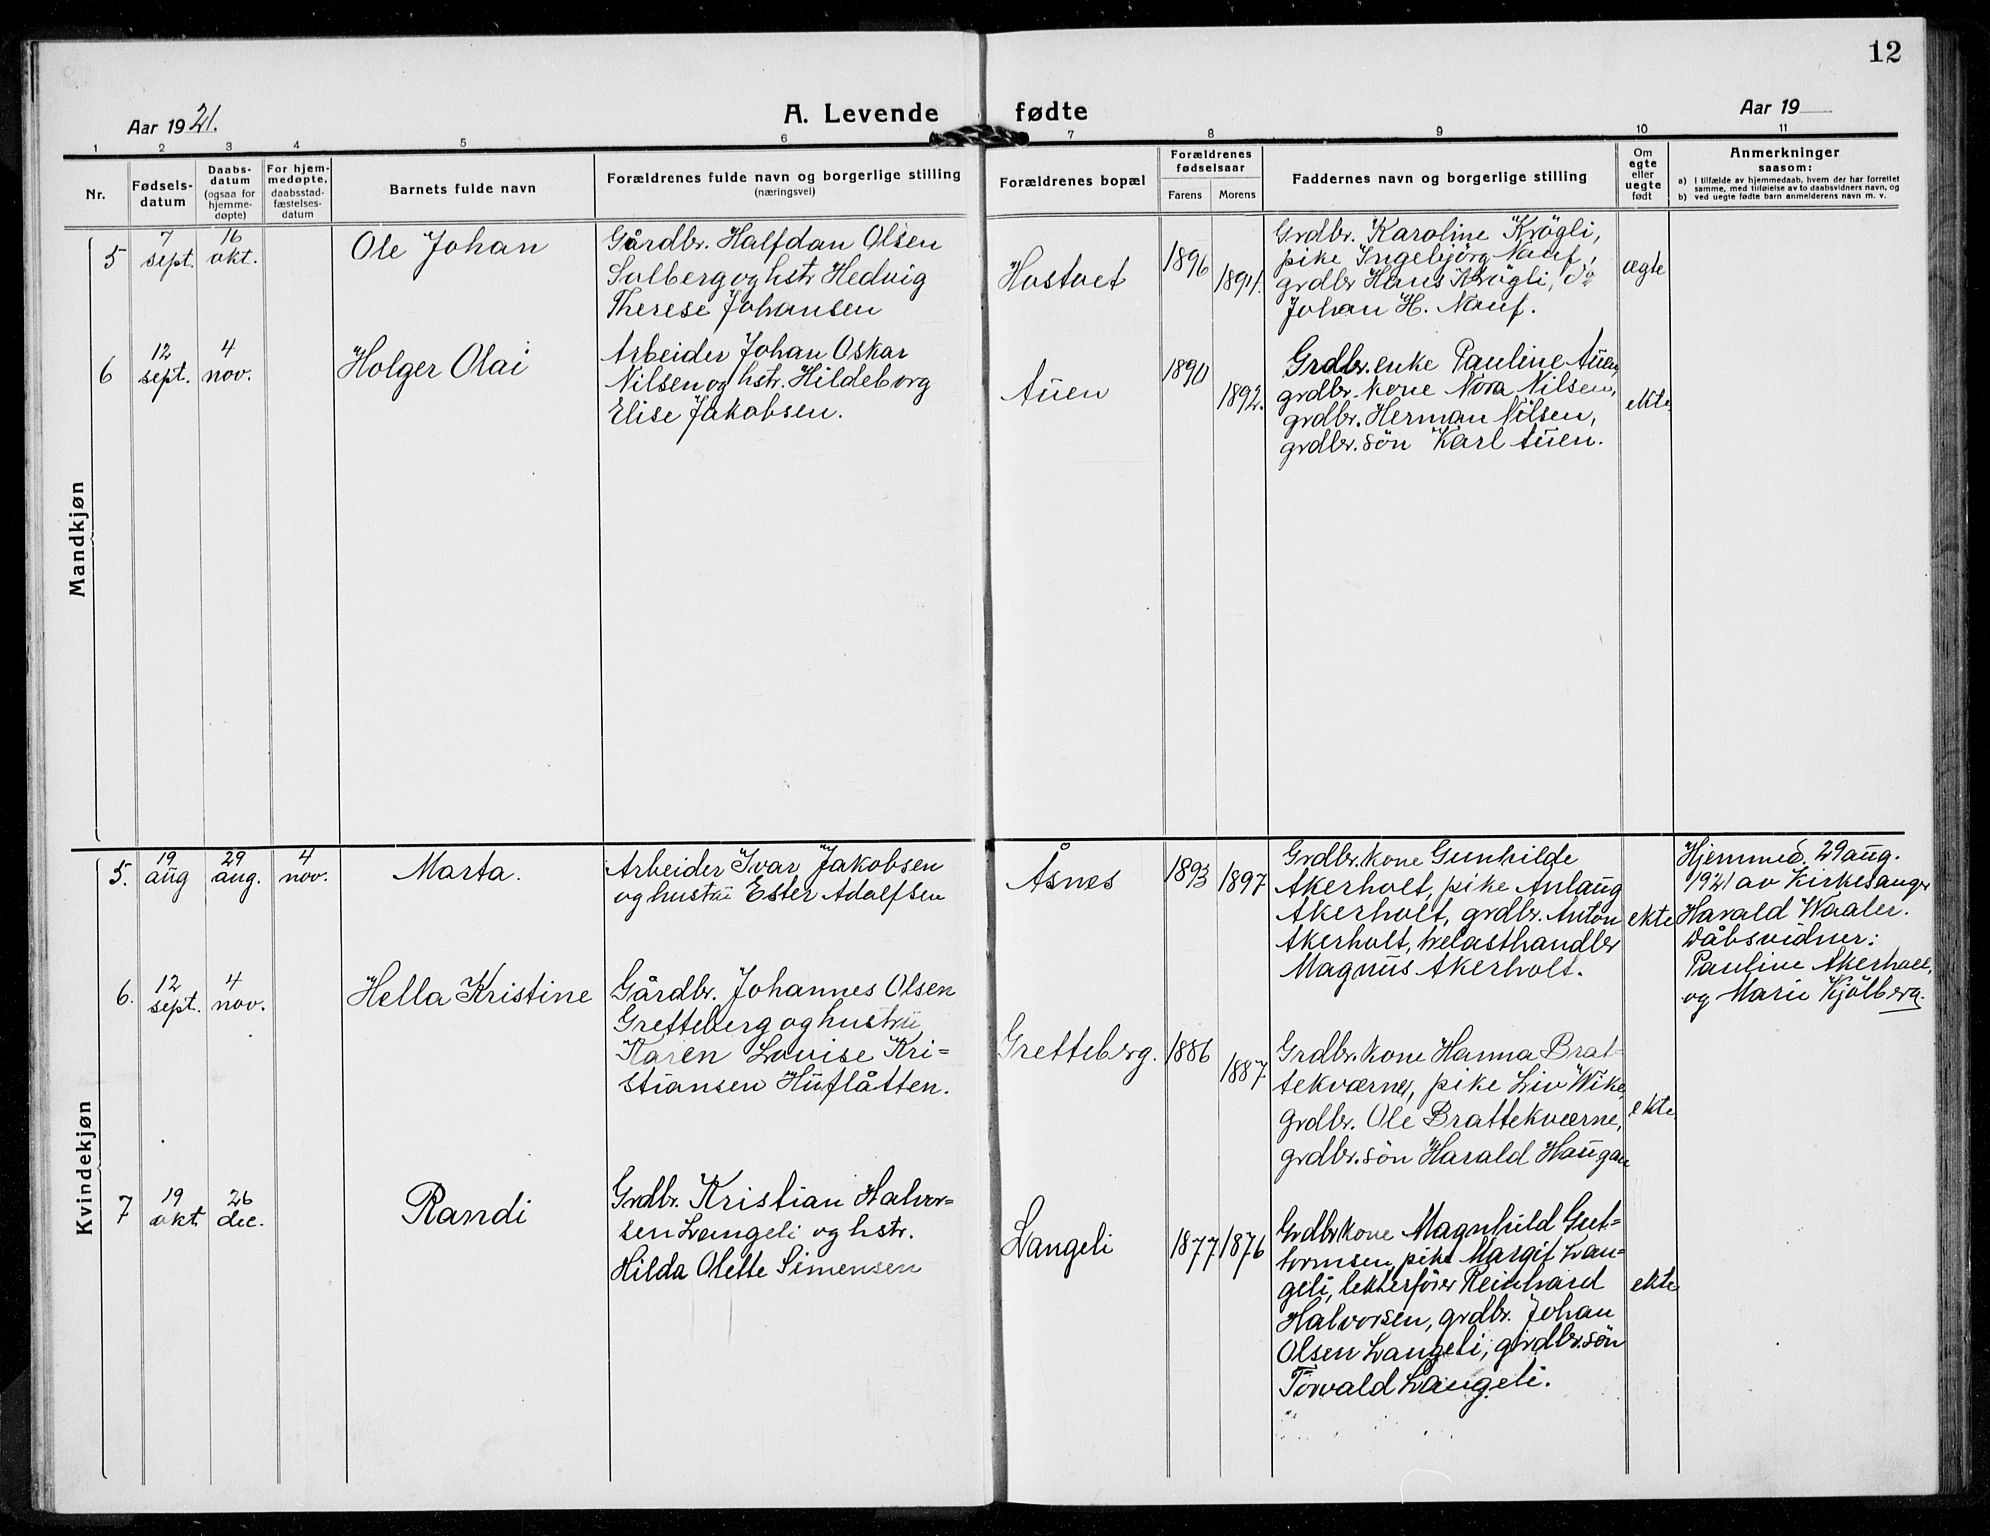 12
Aar 1921.
A. Levende fødte
Aar 19
1 2 3 4 5 6 7 8 9 10 11
Nr.
Fødsels-
datum
Daabs-
datum
(ogsaa for
hjemme-
døpte)
For hjem-
medøpte,
daabsstad-
fæstelses-
datum
Barnets fulde navn
Forældrenes fulde navn og borgerlige stilling
(næringsvei)
Forældrenes bopæl
Forældrenes
fødselsaar
Farens Morens
Faddernes navn og borgerlige stilling
Om
egte
eller
uegte
født
Anmerkninger
saasom:
a) I tilfælde av hjemmedaab, hvem der har forrettet
samme, med tilføielse av to daabsvidners navn, og
b) ved uegte fødte barn anmelderens navn m. v.
Mandkjøn
5
7
sept.
16
okt.
Ole Johan
Gårdbr. Halfdan Olsen
Solberg og hstr Hedvig
Therese Johansen
Hostvet
1896
1894.
Grdbr. Karoline Krögli,
pike Ingebjörg Nauf,
grdbr Hans Krögli, do
Johan H. Nauf.
ægte
6
12
sept.
4
nov.
Holger Olai
Arbeider Johan Oskar
Nilsen og hstr. Hildeborg
Elise Jakobsen.
Auen
1890
1892.
Grdbr. enke Pauline Auen,
grdbr. kone Nora Nilsen,
grdbr. Herman Nilsen,
grdbr. søn Karl Auen.
ekte
Kvindekjøn
5.
19
aug
29
aug.
4
nov.
Marta.
Arbeider Ivar Jakobsen
og hustru Ester Adolfsen
Åsnes
1893
1897
Grdbr. kone Gunhilde
Akerholt, pike Anlaug
Akerholt, grdbr. Anton
Akerholt, trelasthandler
Magnus Akerholt.
ekte
Hjemmed. 29 aug.
1921 av kirkesanger
Harald Waaler.
Dåbsvidner:
Pauline Akerholt,
og Marie Kjölberg.
6.
12
sept.
4
nov.
Hella Kristine
Gårdbr. Johannes Olsen
Gretteberg og hustru
Karen Lovise Kri=
stiansen Huflåtten.
Gretteberg.
1886
1887
Grdbr. kone Hanna Brat-
tekværne, pike Liv Wike,
grdbr. Ole Brattekværne,
grdbr. søn Harald Haugan
ekte
7
19
okt
26
dec.
Randi
Grdbr. Kristian Halvor=
sen Langeli og hstr.
Hilda Olette Simensen
Langeli
1877
1876
Grdbr kone Magnhild Gut=
tormsen, pike Margit Lan=
geli, lekterfører Reinhard
Halvorsen, grdbr. Johan
Olsen Langeli, grdbr. søn
Torvald Langeli.
ekte